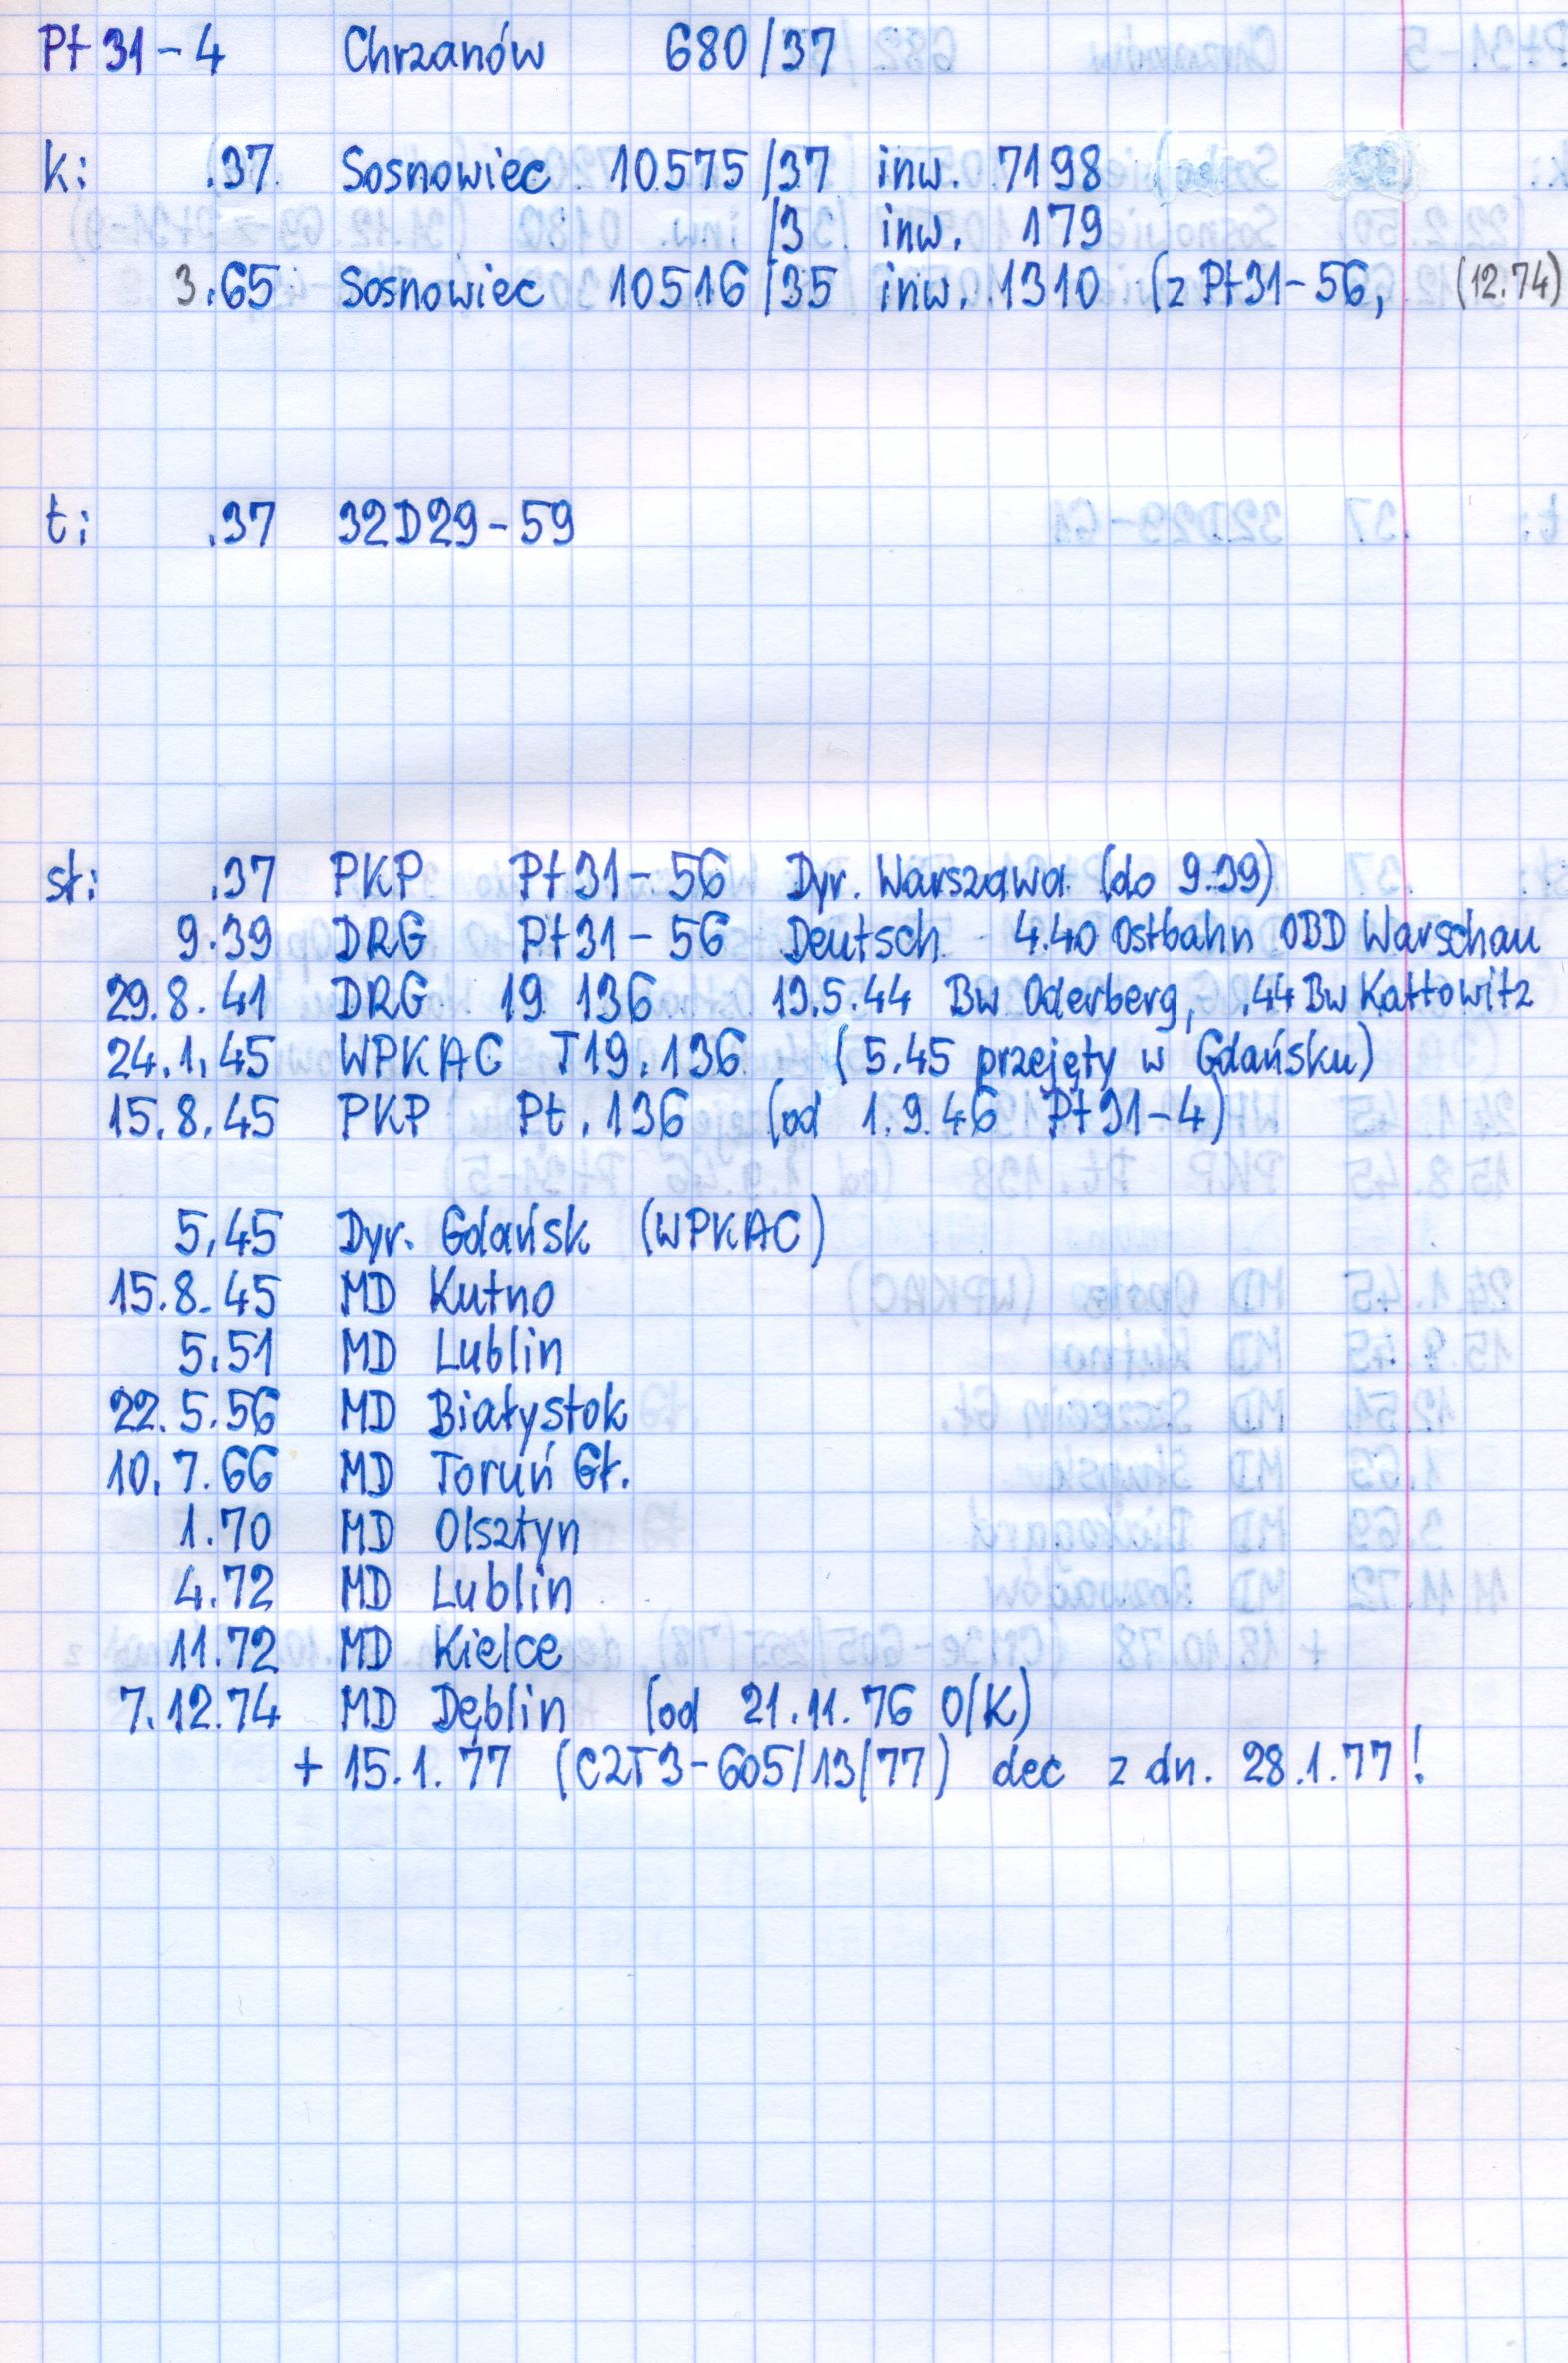 Pt31-4 Chrzanów 680/37
k: .37 Sosnowiec 10575/37 inw. 7198
/3 inw. 179
3.65 Sosnowiec 10516/35 inw. 1310 (z Pt31-56, (12.74)
t: .37 32D29-59
st: .37 PKP Pt31-56 Dyr. Warszawa (do 9.39)
9.39 DRG Pt31-56 Deutsch 4.40 Ostbahn OBD Warschau
29.8.41 DRG 19 136 19.5.44 Bw Oderberg, .44 Bw Kattowitz
24.1.45 WPKAC T19.136 (5.45 przejęty w Gdańsku)
15.8.45 PKP Pt.136 (od 1.9.46 Pt31-4)
5.45 Dyr. Gdańsk (WPKAC)
15.8.45 MD Kutno
5.51 MD Lublin
22.5.56 MD Białystok
10.7.66 MD Toruń Gł.
1.70 MD Olsztyn
4.72 MD Lublin
11.72 MD Kielce
7.12.74 MD Dęblin (od 21.11.76 O/K)
+ 15.1.77 (C2T3-605/13/77) dec z dn. 28.1.77!